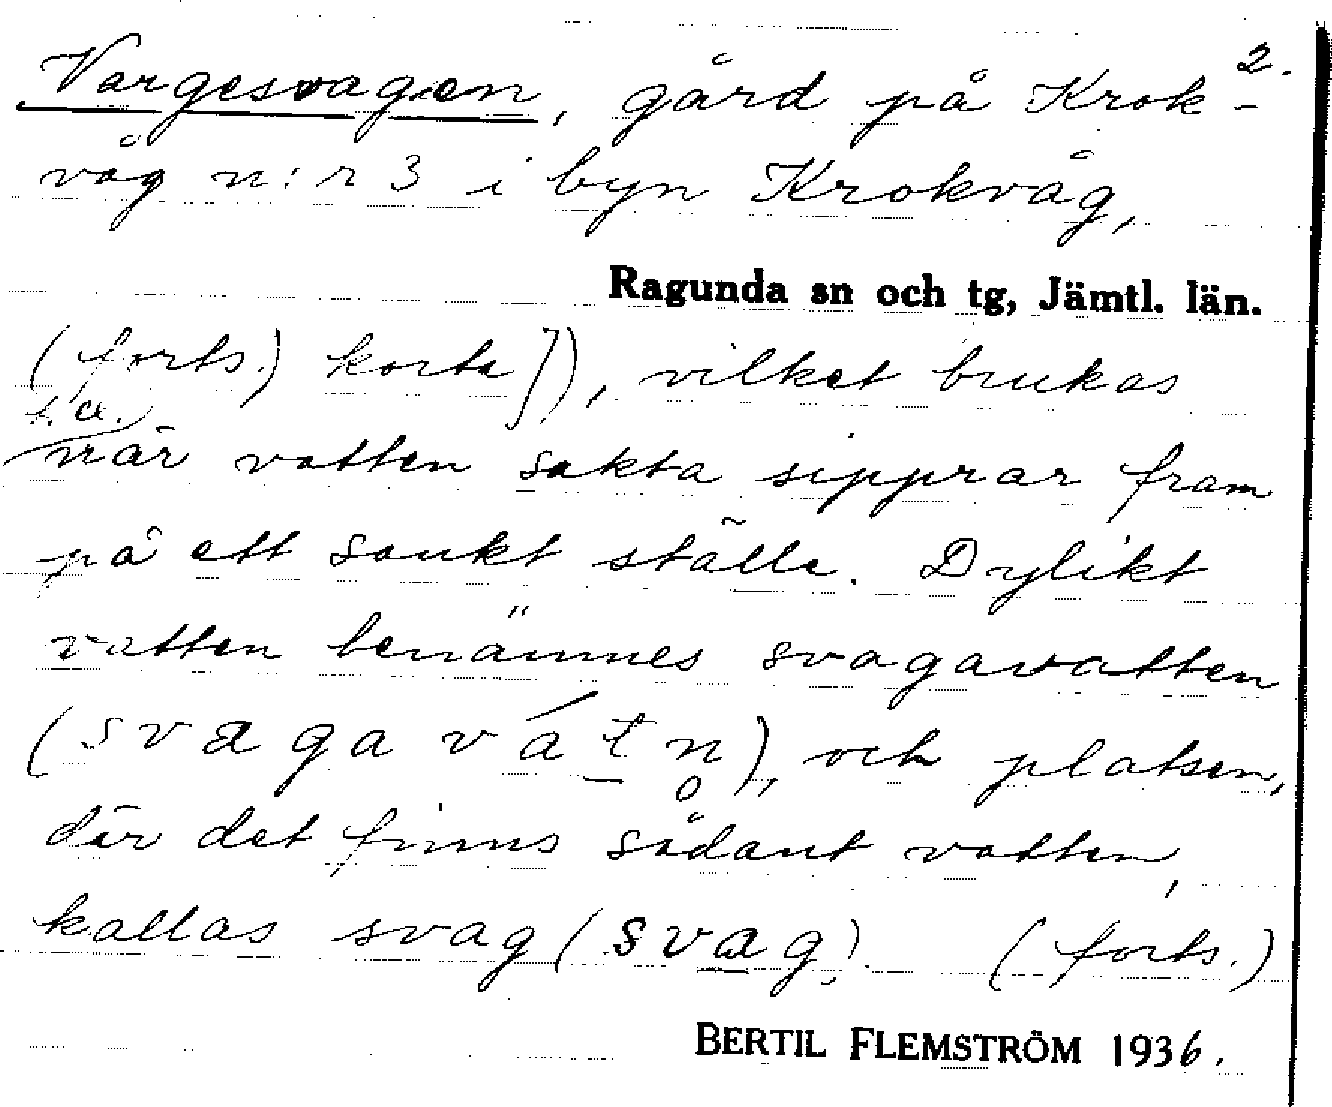 2.
Vargesvagen, gård på Krok-
våg n:r 3 i byn Krokvåg,
Ragunda sn och tg, Jämtl. län.
(forts.) korta]), vilket brukas
bl. a.
när vatten sakta sipprar fram
på ett sankt ställe. Dylikt
vatten benämnes svagavatten
(svagavátn̥), och platsen,
där det finns sådant vatten,
kallas svag (svag). (forts.)
BERTIL FLEMSTRÖM 1936.